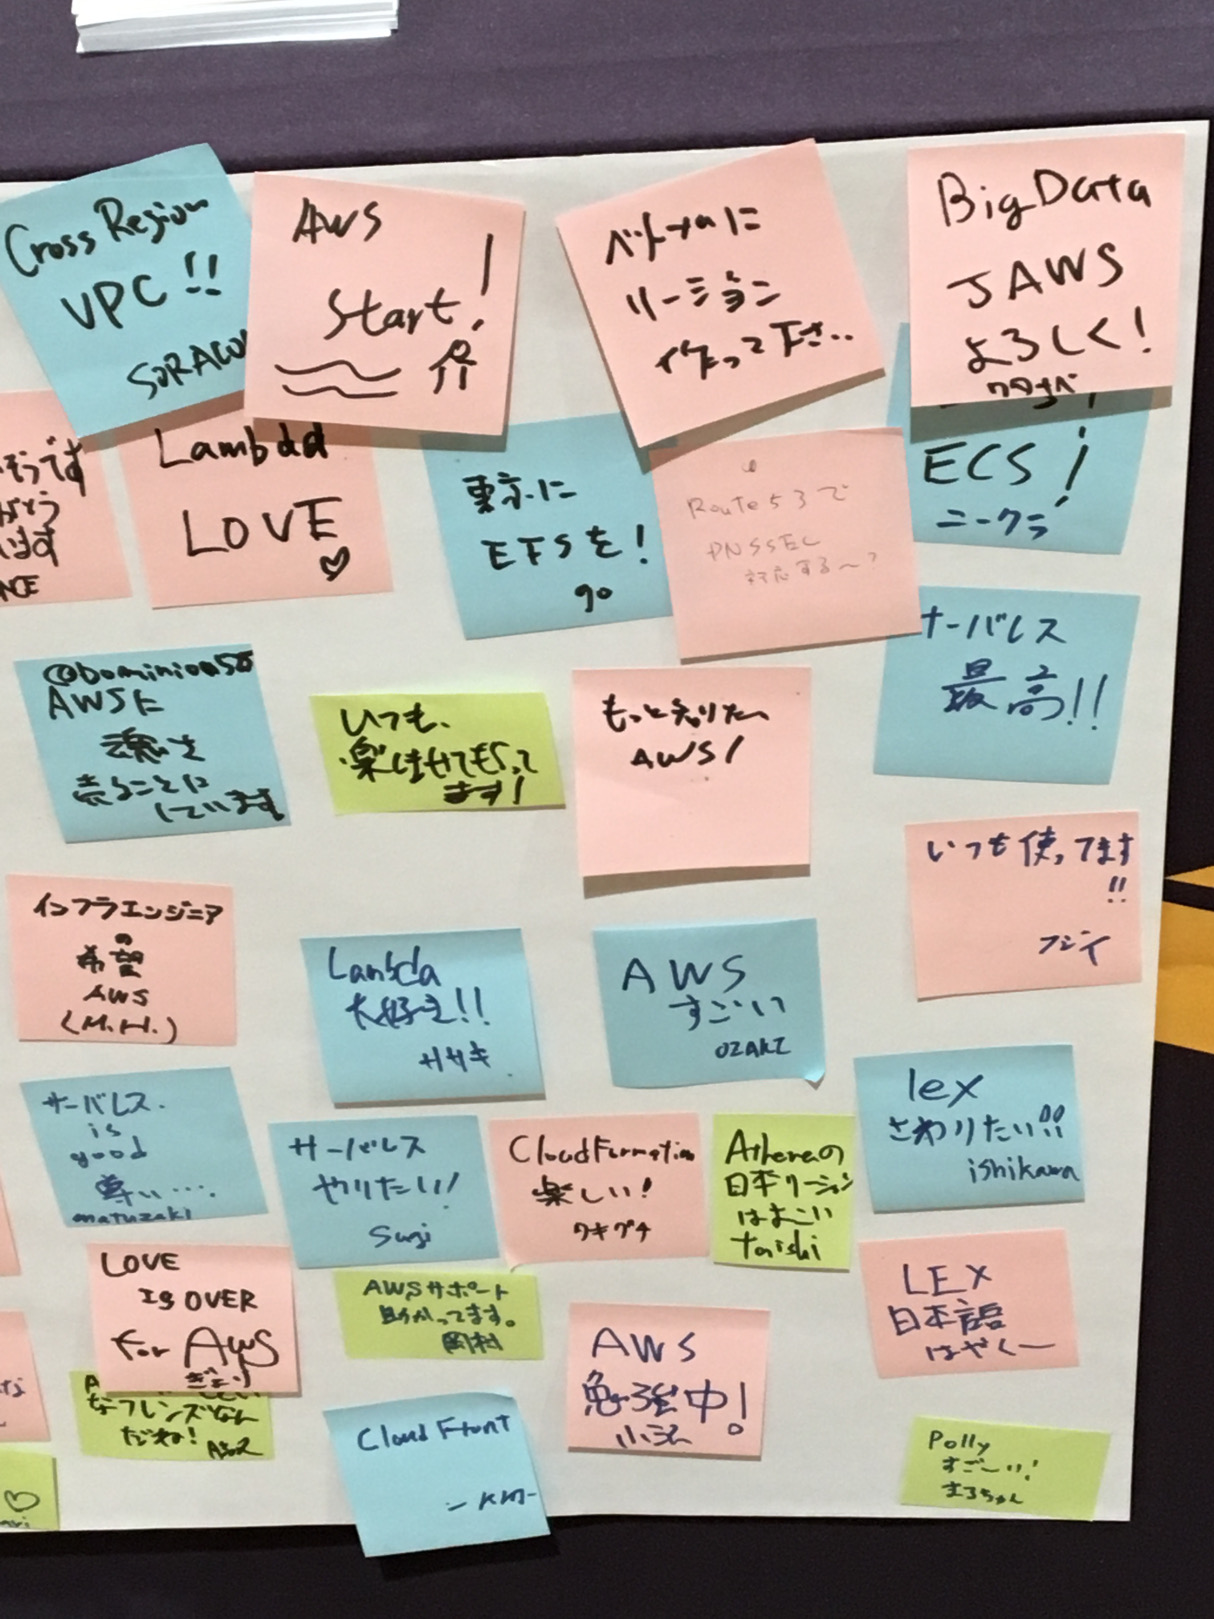 Cross Region
VPC!!
SORACO
AWS
Start!
介
ベトナムに
リージョン
作って下さい
Big Data
JAWS
よろしく!
ワタナベ
そうです
NCE
Lambda
LOVE
♡
東京に
EFSを!
go
Route53で
DNSSEC
対応する〜?
ECS!
ニークラ
サーバレス
最高!!
@Dominion525
AWSに
魂を
売ることに
しています。
いつも、
楽しませてもらって
ます!
もっと知りたい
AWS!
いつも使ってます
!!
フジイ
インフラエンジニア
の
希望
AWS
(M.H.)
Lambda
大好き!!
ササキ
AWS
すごいい
OZAKI
lex
さわりたい!!
ishikawa
サーバレス.
is
good
尊い….
matuzaki
サーバレス
やりたい!
Sugi
CloudFormation
楽しい!
ワキグチ
Athenaの
日本リージョン
はよこい
taishi
LOVE
IS OVER
for Aws
ぎょり
AWSサポート
助かってます。
岡村
AWS
勉強中!
小沢
LEX
日本語
はやくー
なフレンズなん
だね!
Cloud Front
-KM-
Polly
すごーい!
まるちゃん
♡